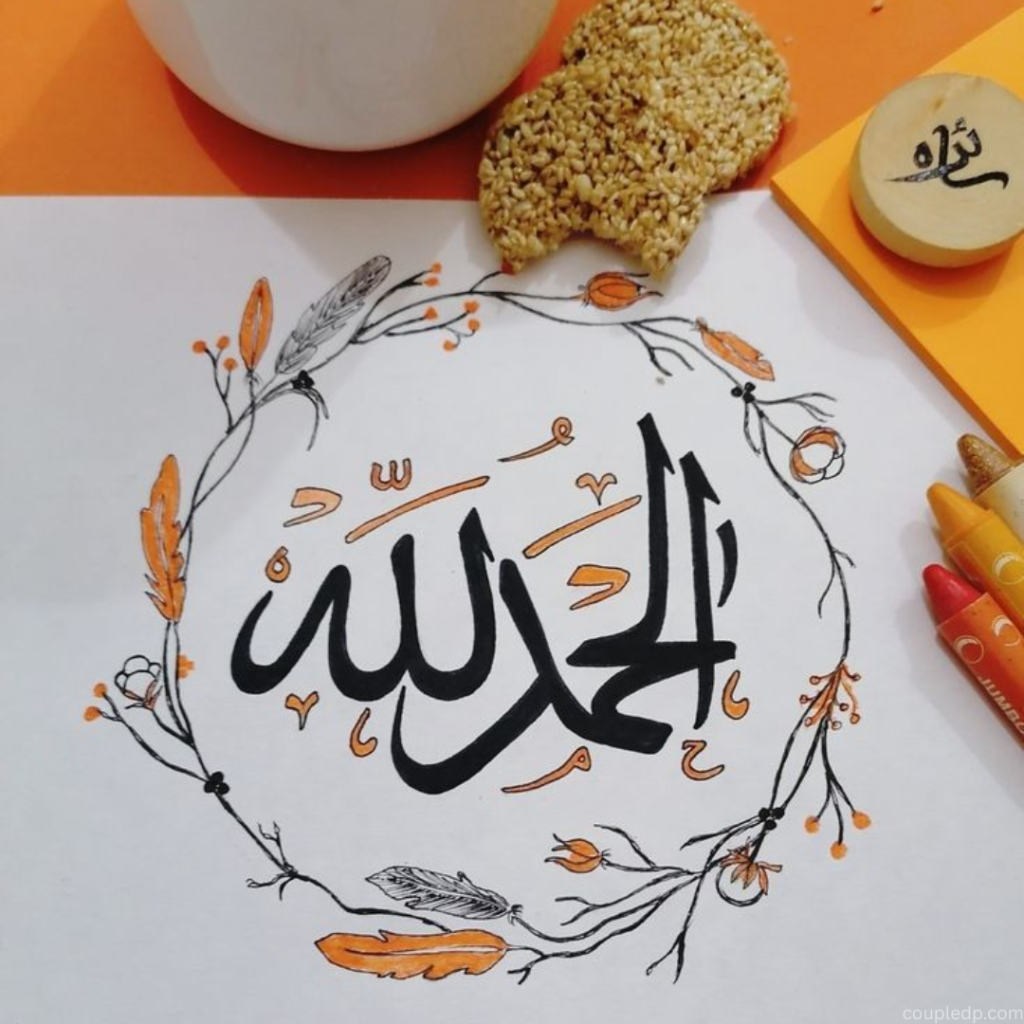 الحمد لله
JUMBO
coupledp.com